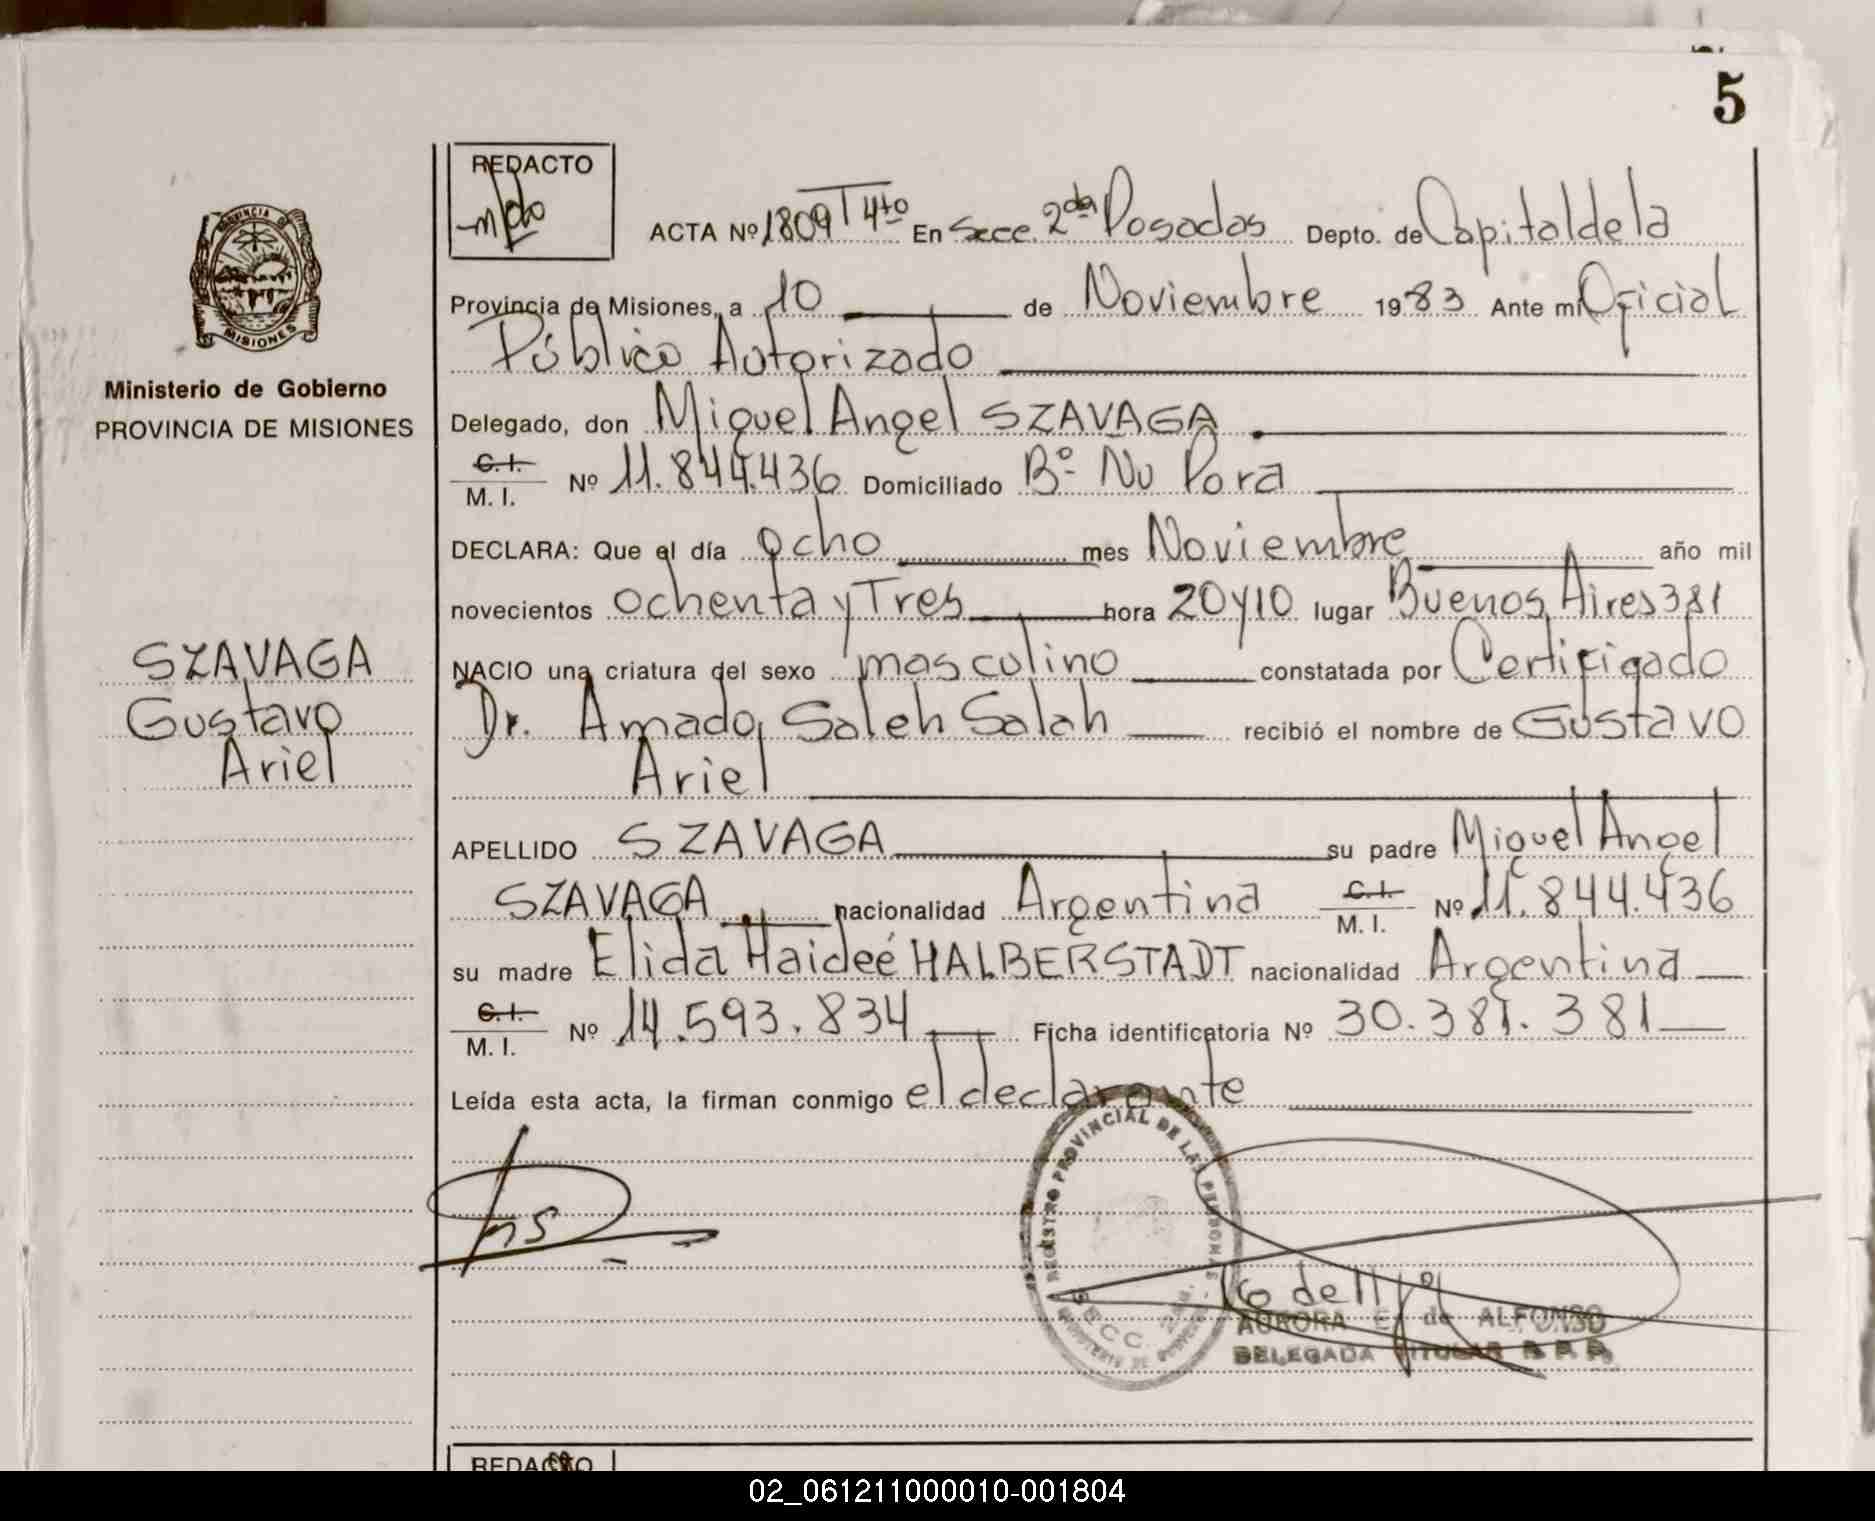 5
REDACTO
ACTA Nº 1809 T 4to En Secc. 2da Posadas Depto. de Capital de la
Provincia de Misiones, a 10 de Noviembre 1983 Ante mi Oficial
Público Autorizado
PROVINCIA DE MISIONES
Ministerio de Gobierno
PROVINCIA DE MISIONES
Delegado, don Miguel Angel SZAVAGA
C. I. M. I. Nº 11.844.436 Domiciliado Bº Ñu Pora
DECLARA: Que el día ocho mes Noviembre año mil
novecientos ochenta y Tres hora 20 y 10 lugar Buenos Aires 381
SZAVAGA
Gustavo
Ariel
NACIO una criatura del sexo masculino constatada por Certificado
Dr. Amado Saleh Salah recibió el nombre de Gustavo
Ariel
APELLIDO SZAVAGA su padre Miguel Angel
SZAVAGA nacionalidad Argentina C. I. M. I. Nº 11.844.436
su madre Elida Haideé HALBERSTADT nacionalidad Argentina
C. I. M. I. Nº 14.593.834 Ficha identificatoria Nº 30.381.381
Leída esta acta, la firman conmigo el declarante
REGISTRO PROVINCIAL DE LAS PERSONAS
SECC.
AURORA E. de ALFONSO
DELEGADA TITULAR R. P. P.
REDACTO
02_061211000010-001804